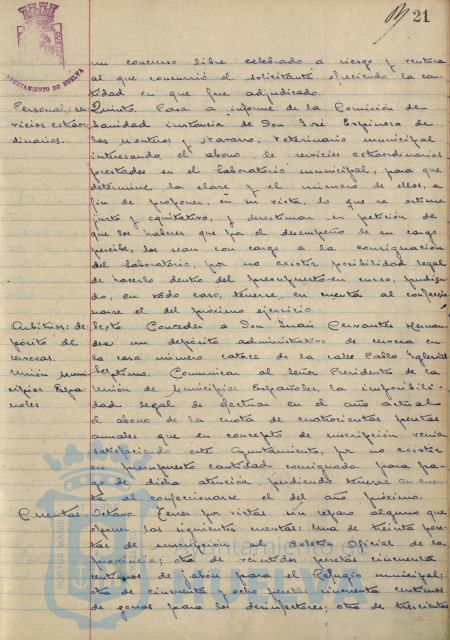 21
AYUNTAMIENTO DE HUELVA
un concurso libre celebrado a riesgo y ventura
al que concurrió el solicitante ofreciendo la can-
tidad en que fue adjudicado.
Personal: ser-
vicios extraor-
dinarios.
Quinto. Pasa a informe de la Comisión de
Sanidad instancia de Don José Espinosa de
los Monteros y Navarro, Veterinario municipal
interesando el abono de servicios extraordinarios
prestados en el laboratorio municipal, para que
determine la clase y el número de ellos, a
fin de proponer, en su vista, lo que se estime
justo y equitativo, y desestimar su petición de
que los haberes que por el desempeño de su cargo
percibe, los sean con cargo a la consignación
del laboratorio, por no existir posibilidad legal
de hacerlo dentro del presupuesto en curso, pudien-
do, en todo caso, tenerse en cuenta al confeccio-
narse el del próximo ejercicio.
Arbitrios: de-
pósito de
cervezas.
Sexto. Conceder a Don Juan Cervantes Hernan-
dez un depósito administrativo de cerveza en
la casa número catorce de la calle Pablo Iglesias
Unión Muni-
cipios Espa-
ñoles
Septimo. Comunicar al Señor Presidente de la
Unión de Municipios Españoles, la imposibili-
dad legal de efectuar en el año actual
el abono de la cuota de cuatrocientas pesetas
anuales que en concepto de suscripción venia
satisfaciendo este Ayuntamiento, por no existir
en presupuesto cantidad consignada para pa-
go de dicha atención, pudiendo tenerse en cuen-
ta al confeccionarse el del año próximo.
Cuentas.
Octavo. Tener por vistas sin reparo alguno que
oponer las siguientes cuentas: Una de treinta pese-
tas de suscripción al Boletin Oficial de la
provincia; otra de veintidos pesetas cincuenta
centimos de jabón para el Refugio municipal;
otra de cincuenta y ocho pesetas cincuenta centimos
de gomas para los desinfectores; otra de trescientas
Ayuntamiento de
HUELVA